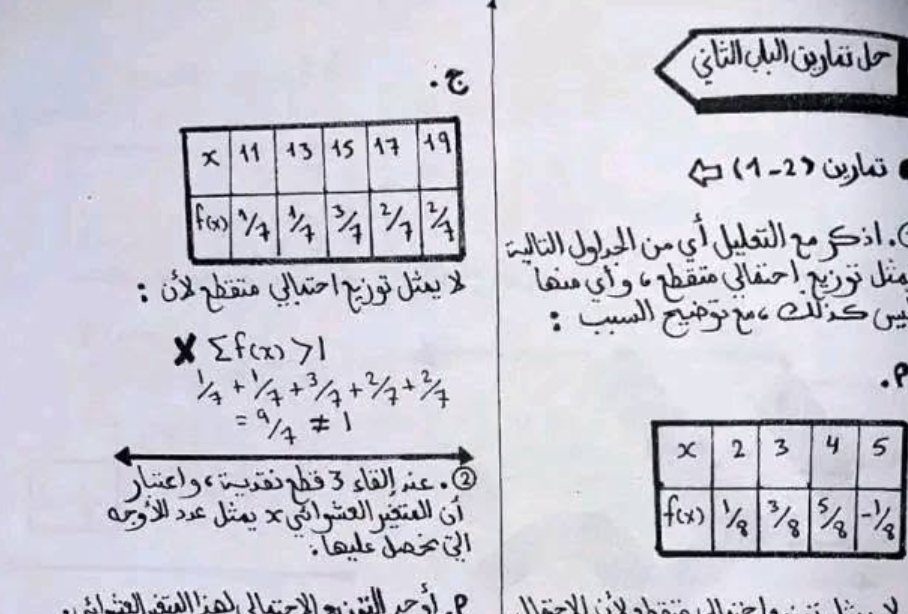 حل تمارين الباب الثاني
تمارين (2-1)
اذكر مع التعليل أي من الجداول التالية
يمثل توزيع احتمالي متقطع، وأي منها
ليس كذلك، مع توضيح السبب :
P.
x 2 3 4 5
f(x) 1/8 3/8 5/8 -1/8
لا يمثل توزيع احتمالي متقطع لأن الاحتمال
ج.
x 11 13 15 17 19
f(x) 1/7 1/7 3/7 2/7 2/7
لا يمثل توزيع احتمالي متقطع لأن :
✗ Σf(x) >1
1/7 + 1/7 + 3/7 + 2/7 + 2/7
= 9/7 ≠ 1
② . عند إلقاء 3 قطع نقدية، واعتبار
أن المتغير العشوائي x يمثل عدد الأوجه
التي نحصل عليها.
P. أوجد التوزيع الاحتمالي لهذا المتغير العشوائي.